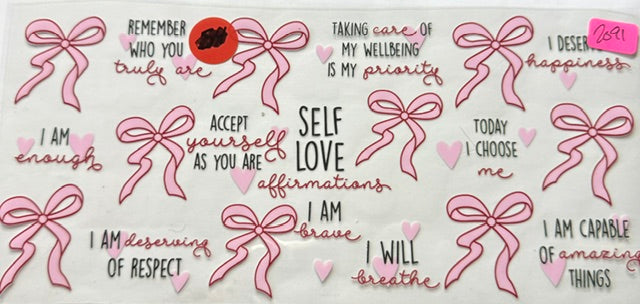 REMEMBER
WHO YOU
truly are
TAKING care OF
MY WELLBEING
IS MY priority
I DESERVE
happiness
2091
I AM
enough
ACCEPT
yourself
AS YOU ARE
SELF
LOVE
affirmations
TODAY
I CHOOSE
me
I AM deserving
OF RESPECT
I AM
brave
I WILL
breathe
I AM CAPABLE
OF amazing
THINGS